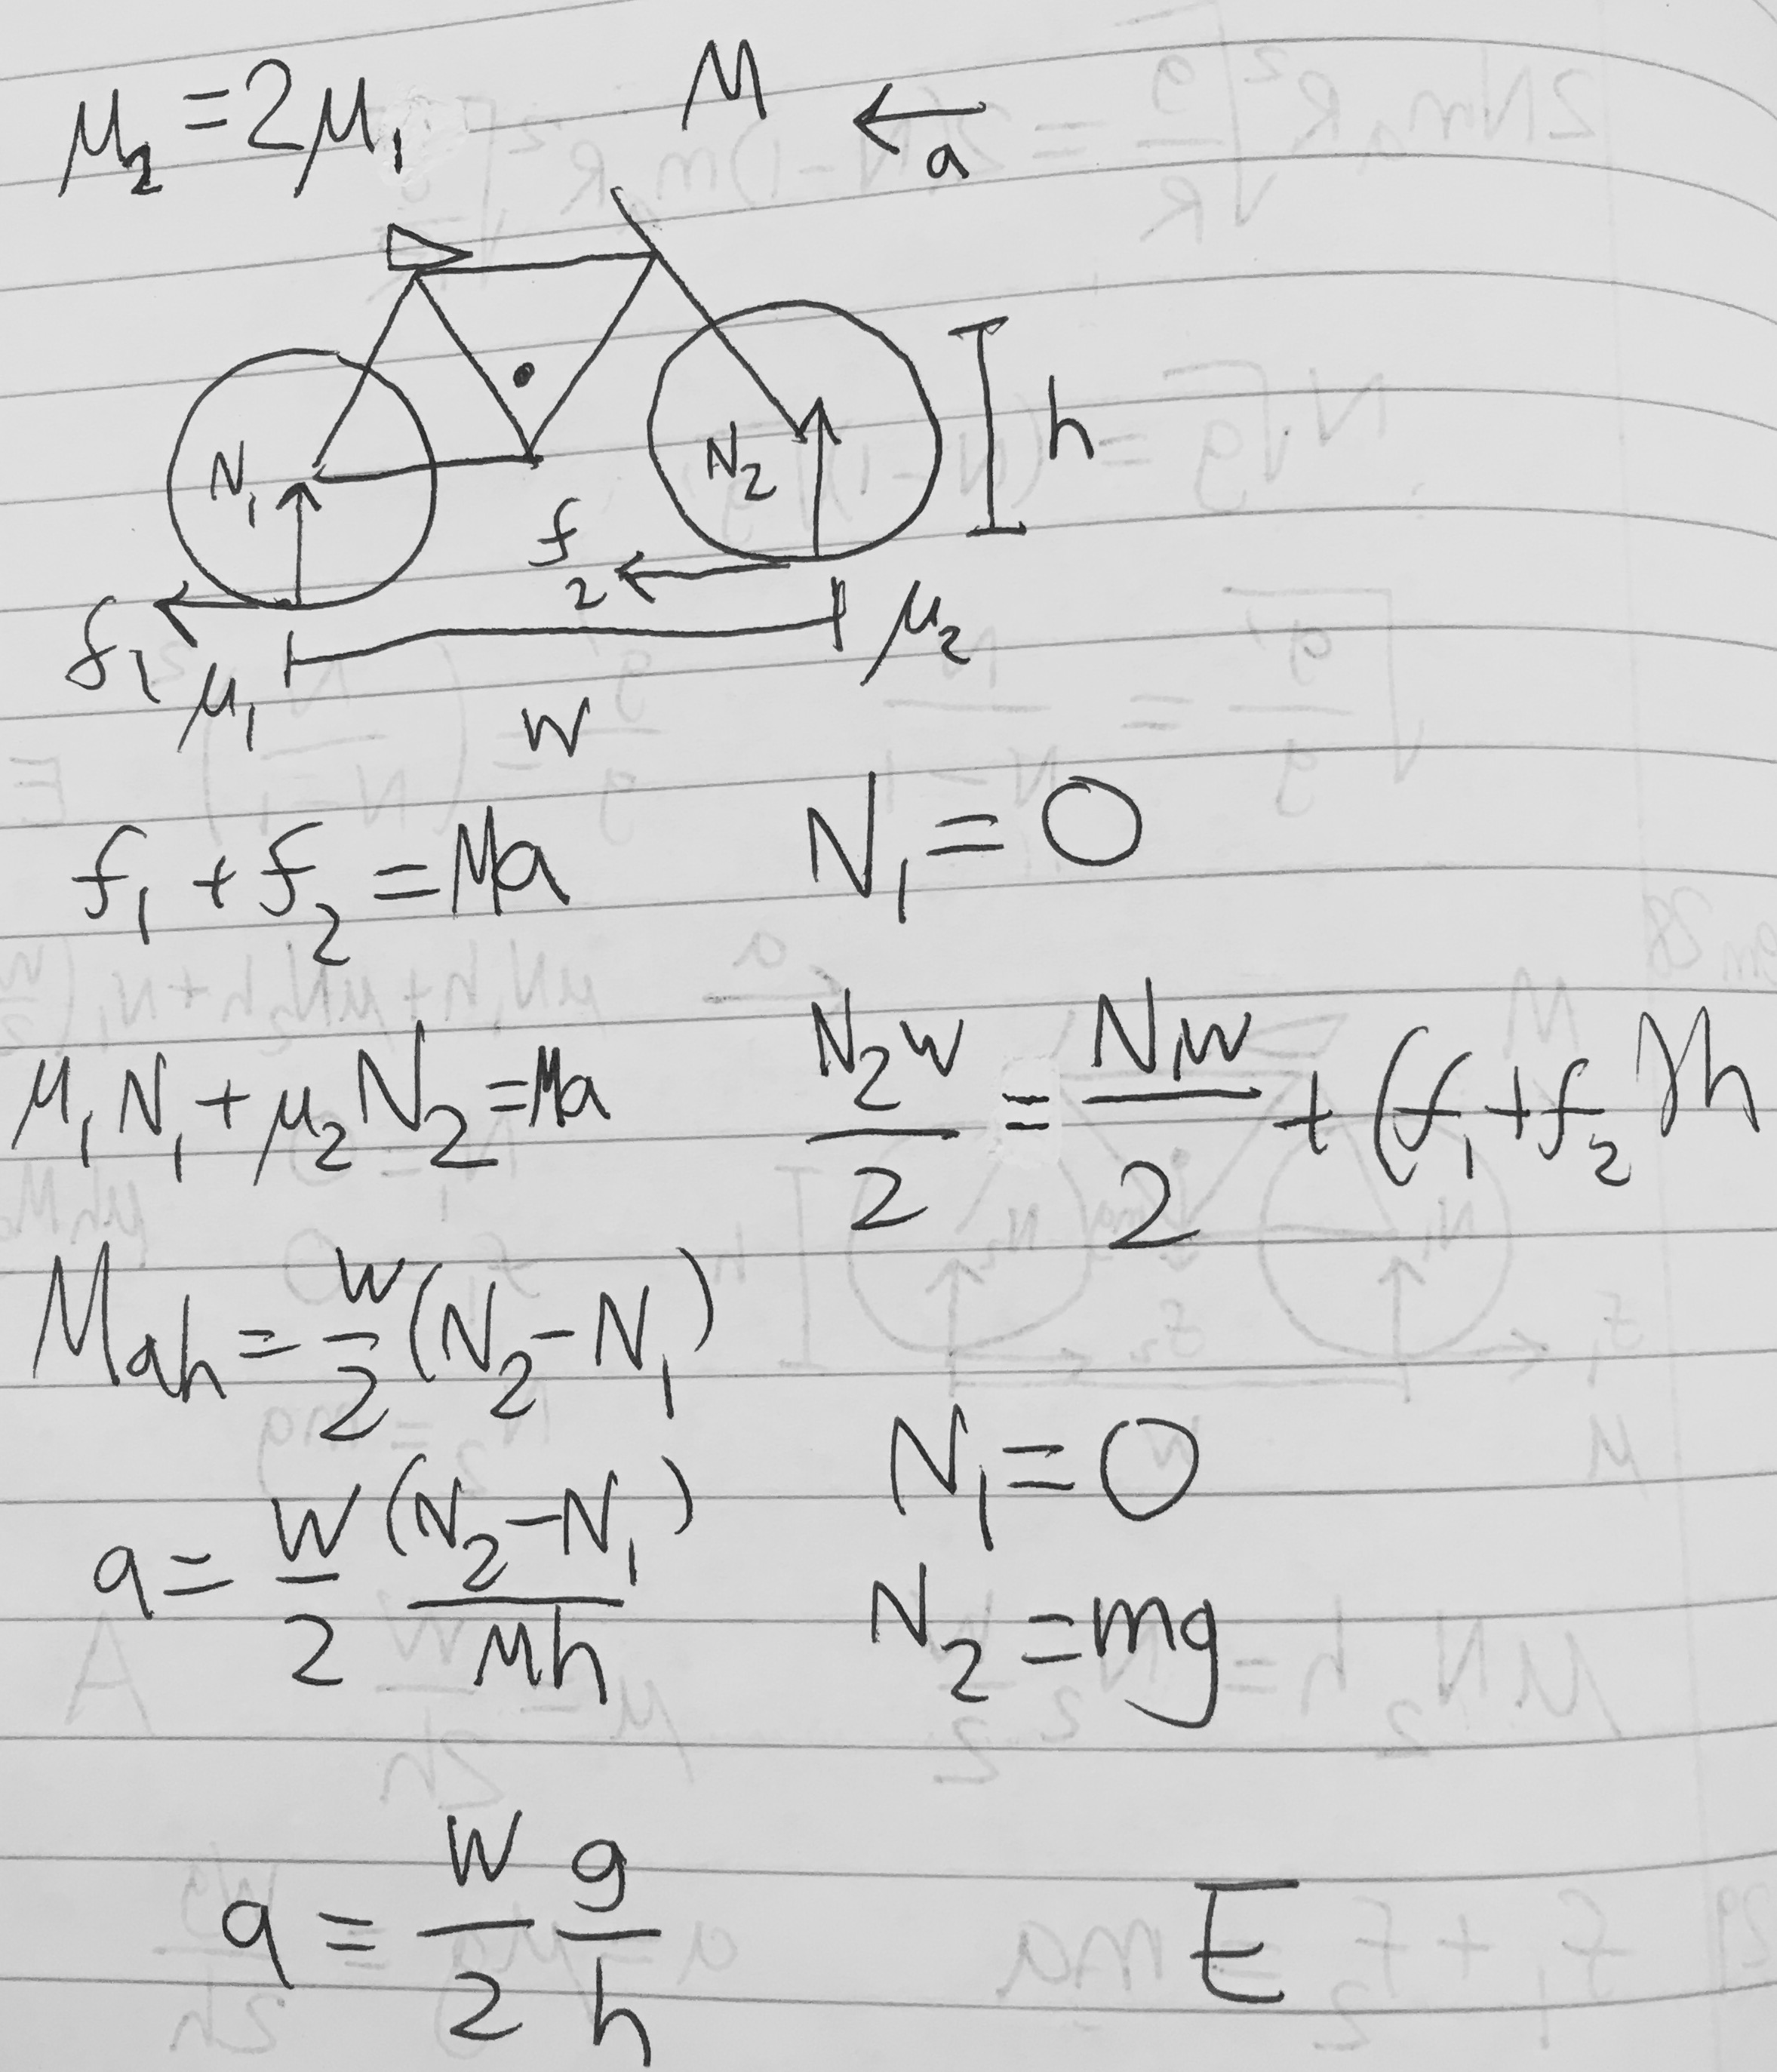 μ₂ = 2μ₁
M
a
h
N₁
N₂
f₂
f₁
μ₁
μ₂
w
f₁ + f₂ = Ma
N₁ = 0
μ₁N₁ + μ₂N₂ = Ma
N₂w/2 = N₁w/2 + (f₁ + f₂)h
Mah = w/2 (N₂ - N₁)
N₁ = 0
a = w/2 (N₂ - N₁)/Mh
N₂ = mg
a = w/2 g/h
E